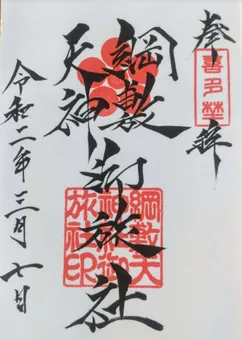 奉拝
喜多埜
綱敷
天神
御旅社
綱敷天
神御
旅社印
令和二年三月七日